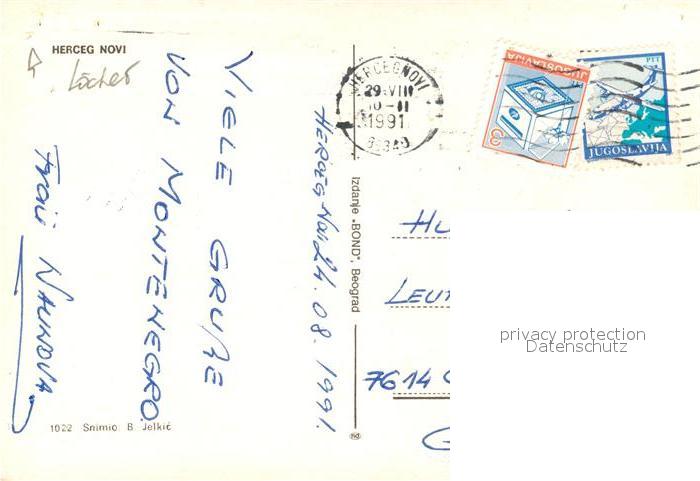 HERCEG NOVI
Löcher
VIELE GRUßE
VON MONTENEGRO.
HERCEG NOVI 24.08.1991.
1022 Snimio B. Jelkić
Izdanje „BOND", Beograd
HERCEGNOVI
29.VIII
10-11
1991
85340
JUGOSLAVIJA
3
PTT
JUGOSLAVIJA
HU
LEUT
7614
G
privacy protection
Datenschutz